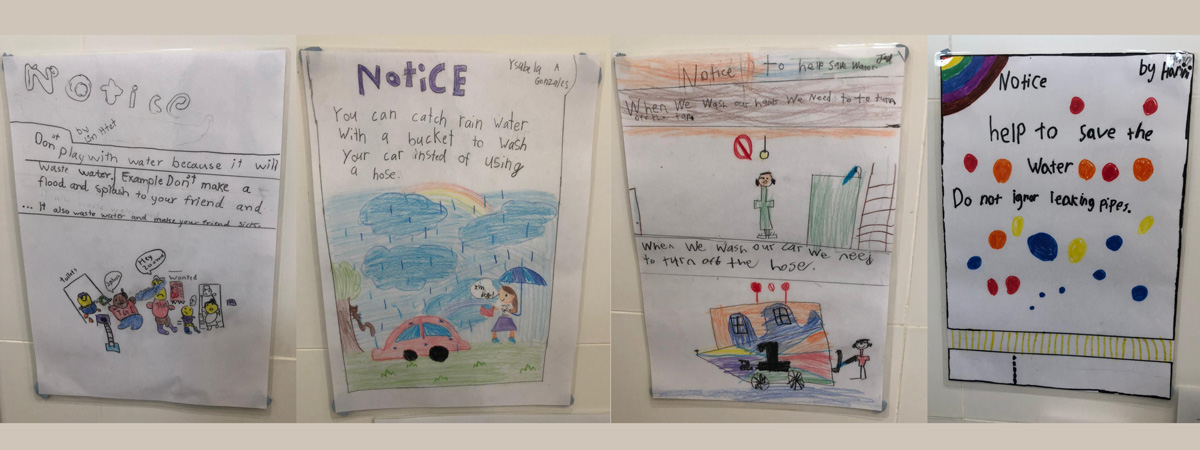 Notice
by
Don't play with water because it will
waste water. Example Don't make a
flood and splash to your friend and
... It also waste water and make your friend sick.
toilets
Hey
Wanted
NOtiCE
Ysabela A
Gonzales
You can catch rain water
With a bucket to wash
Your car insted of using
a hose.
Notice to help save water
When We Wash our hands We Need to to turn
off the tap.
When We Wash our car We need
to turn off the hose.
1
Notice
by Hanni
help to save the
Water
Do not ignor leaking pipes.